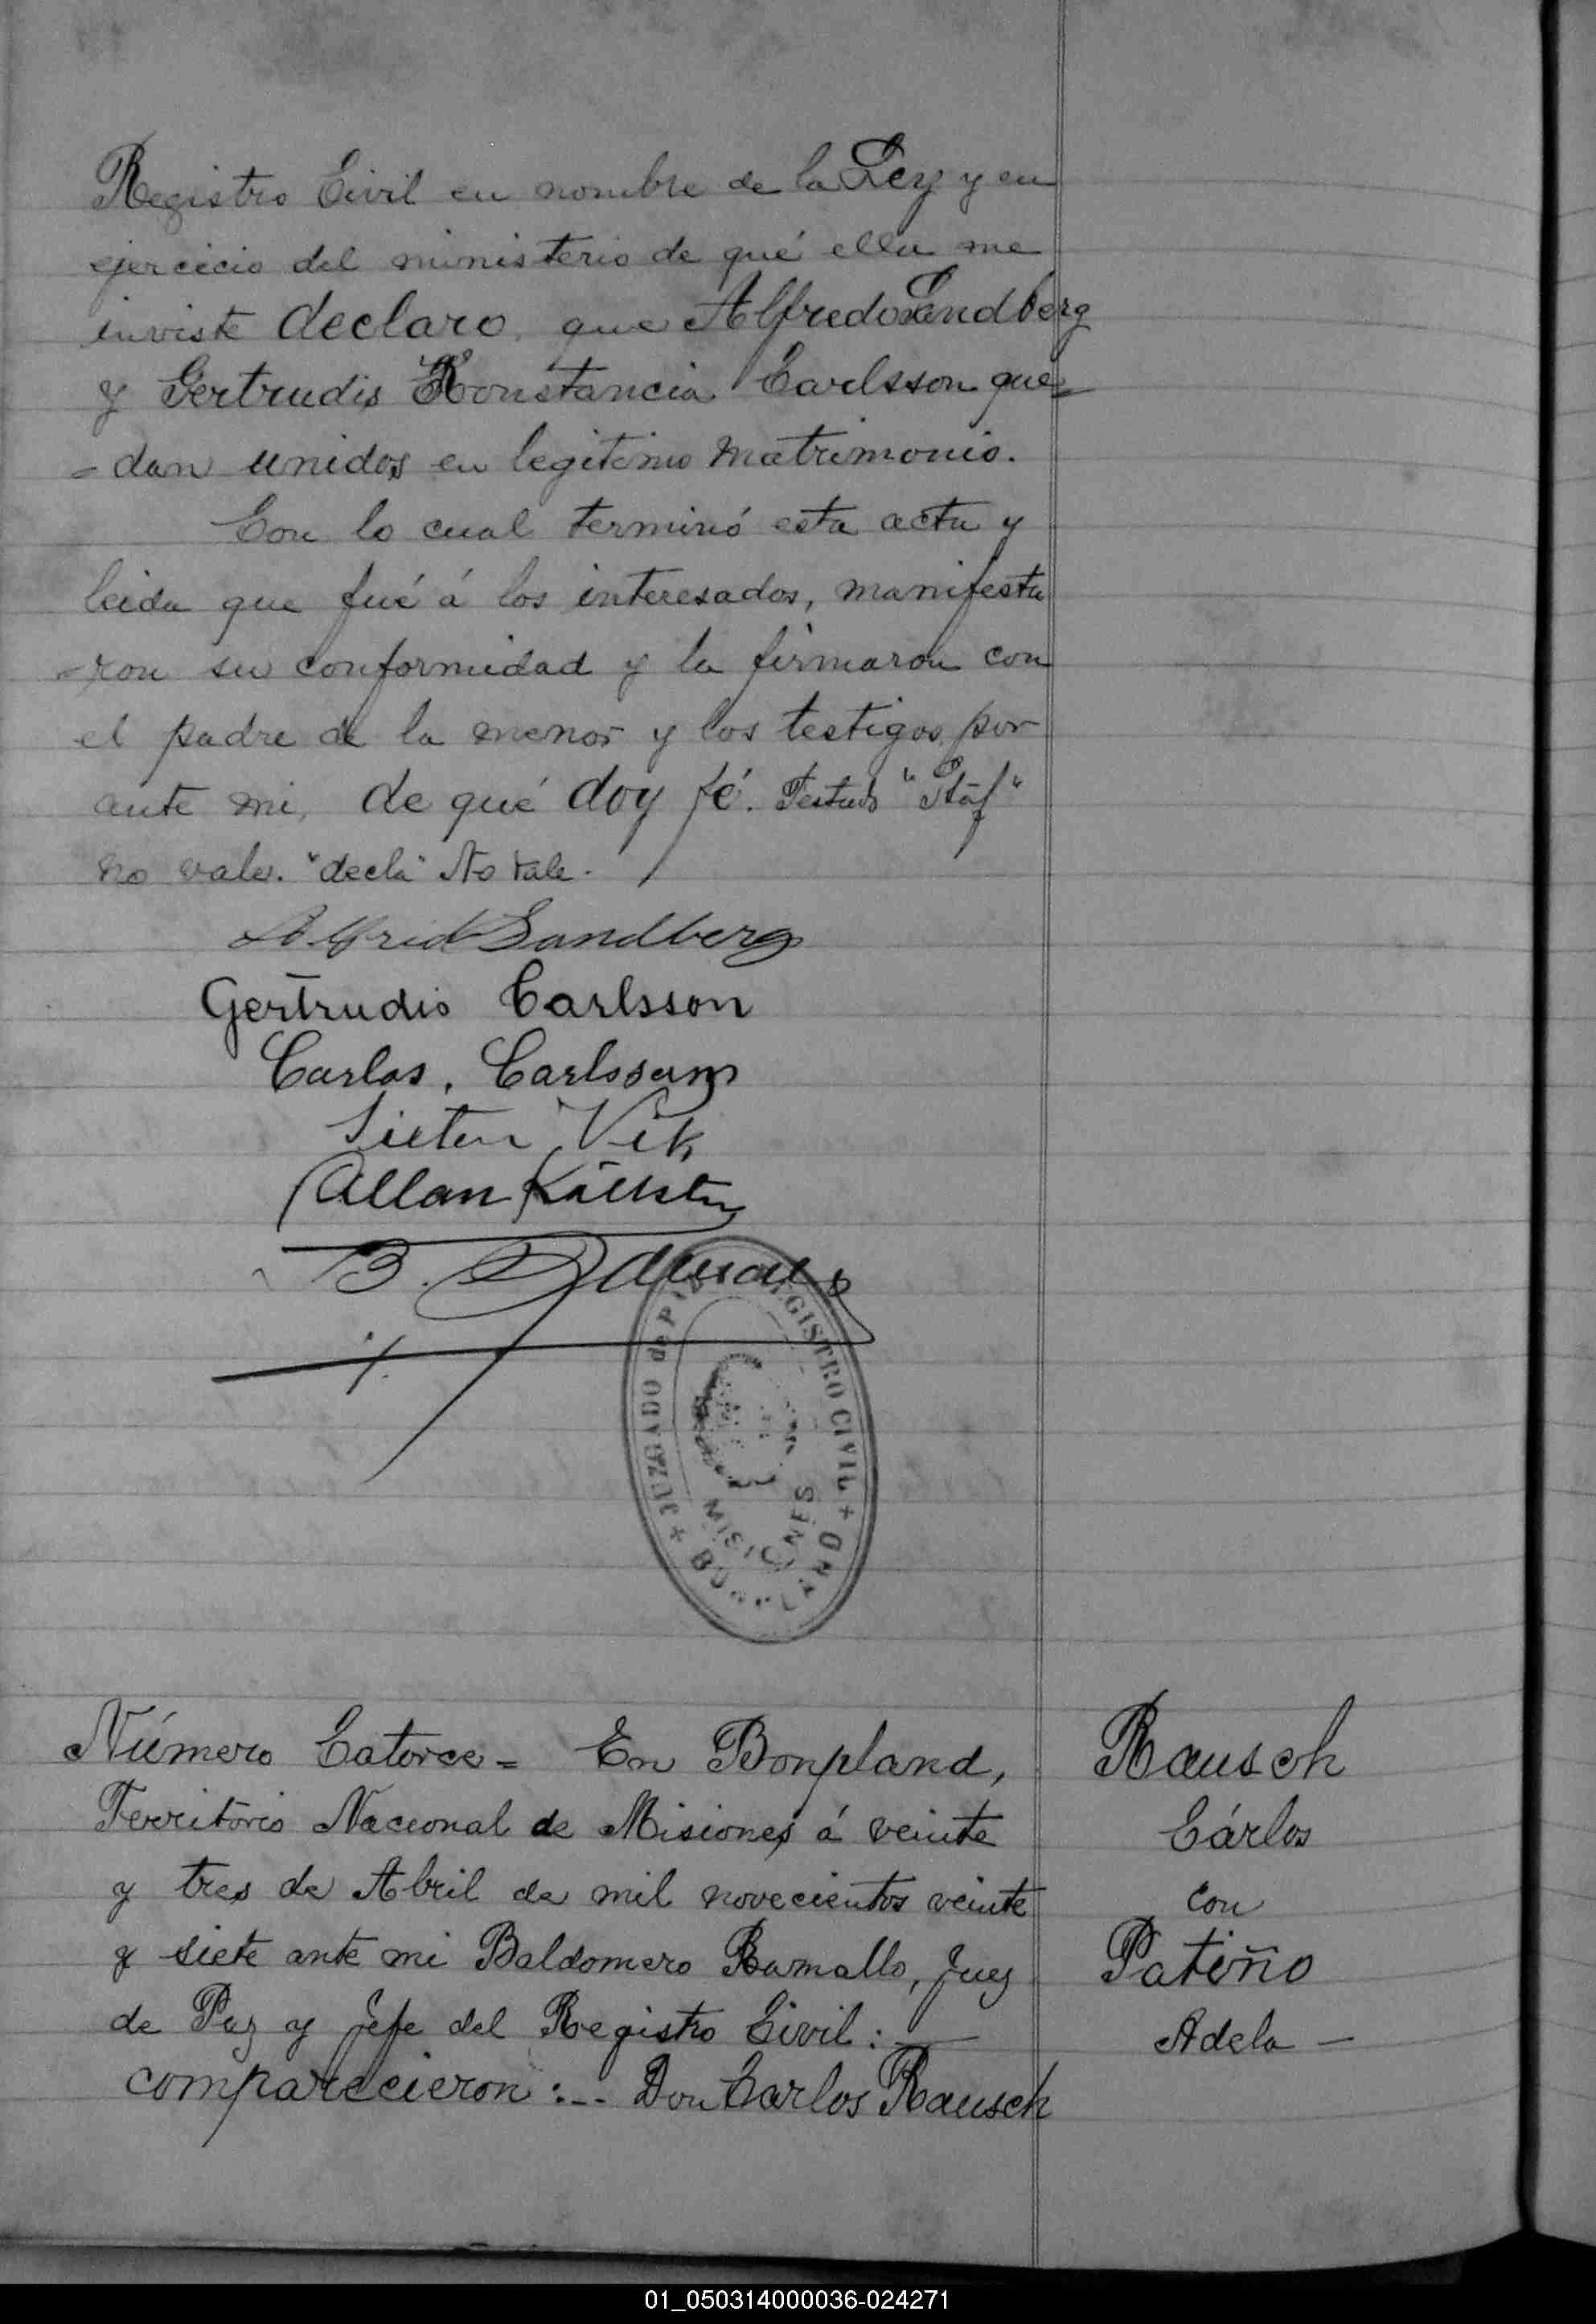 Registro Civil en nombre de la Ley y en
ejercicio del ministerio de qué ella me
inviste declaro que Alfredo Sandberg
y Gertrudis Konstancia Carlsson que=
=dan unidos en legitimo matrimonio.
Con lo cual terminó esta acta y
leida que fué á los interesados, manifesta
=ron su conformidad y la firmaron con
el padre de la menor y los testigos por
ante mi, de qué doy fé. Testado
no vale. "decla" No vale.
Alfrid Sandberg
Gertrudis Carlsson
Carlos. Carlsson
Vik
Allan
B. Ramallo
JUZGADO de PAZ REGISTRO CIVIL + BONPLAND +
MISIONES
Número Catorce = En Bonpland,
Territorio Nacional de Misiones á veinte
y tres de Abril de mil novecientos veinte
y siete ante mi Baldomero Ramallo, Juez
de Paz y Jefe del Registro Civil: —
comparecieron:-- Don Carlos Rausch
Rausch
Cárlos
con
Patiño
Adela —
01_050314000036-024271